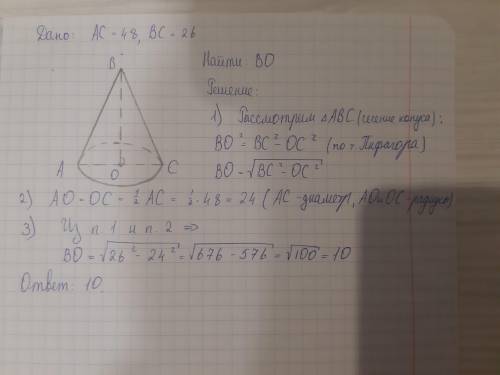 Дано: AC - 48, BC - 26
Найти: BO
Решение:
B
A O C
1) Рассмотрим △ABC (сечение конуса):
BO² = BC² - OC² (по т. Пифагора)
BO = √BC² - OC²
2) AO - OC - ½ AC = ½ · 48 = 24 (AC - диаметр, AO и OC - радиусы)
3) Из п. 1 и п. 2 ⇒
BO = √26² - 24² = √676 - 576 = √100 = 10
Ответ: 10.